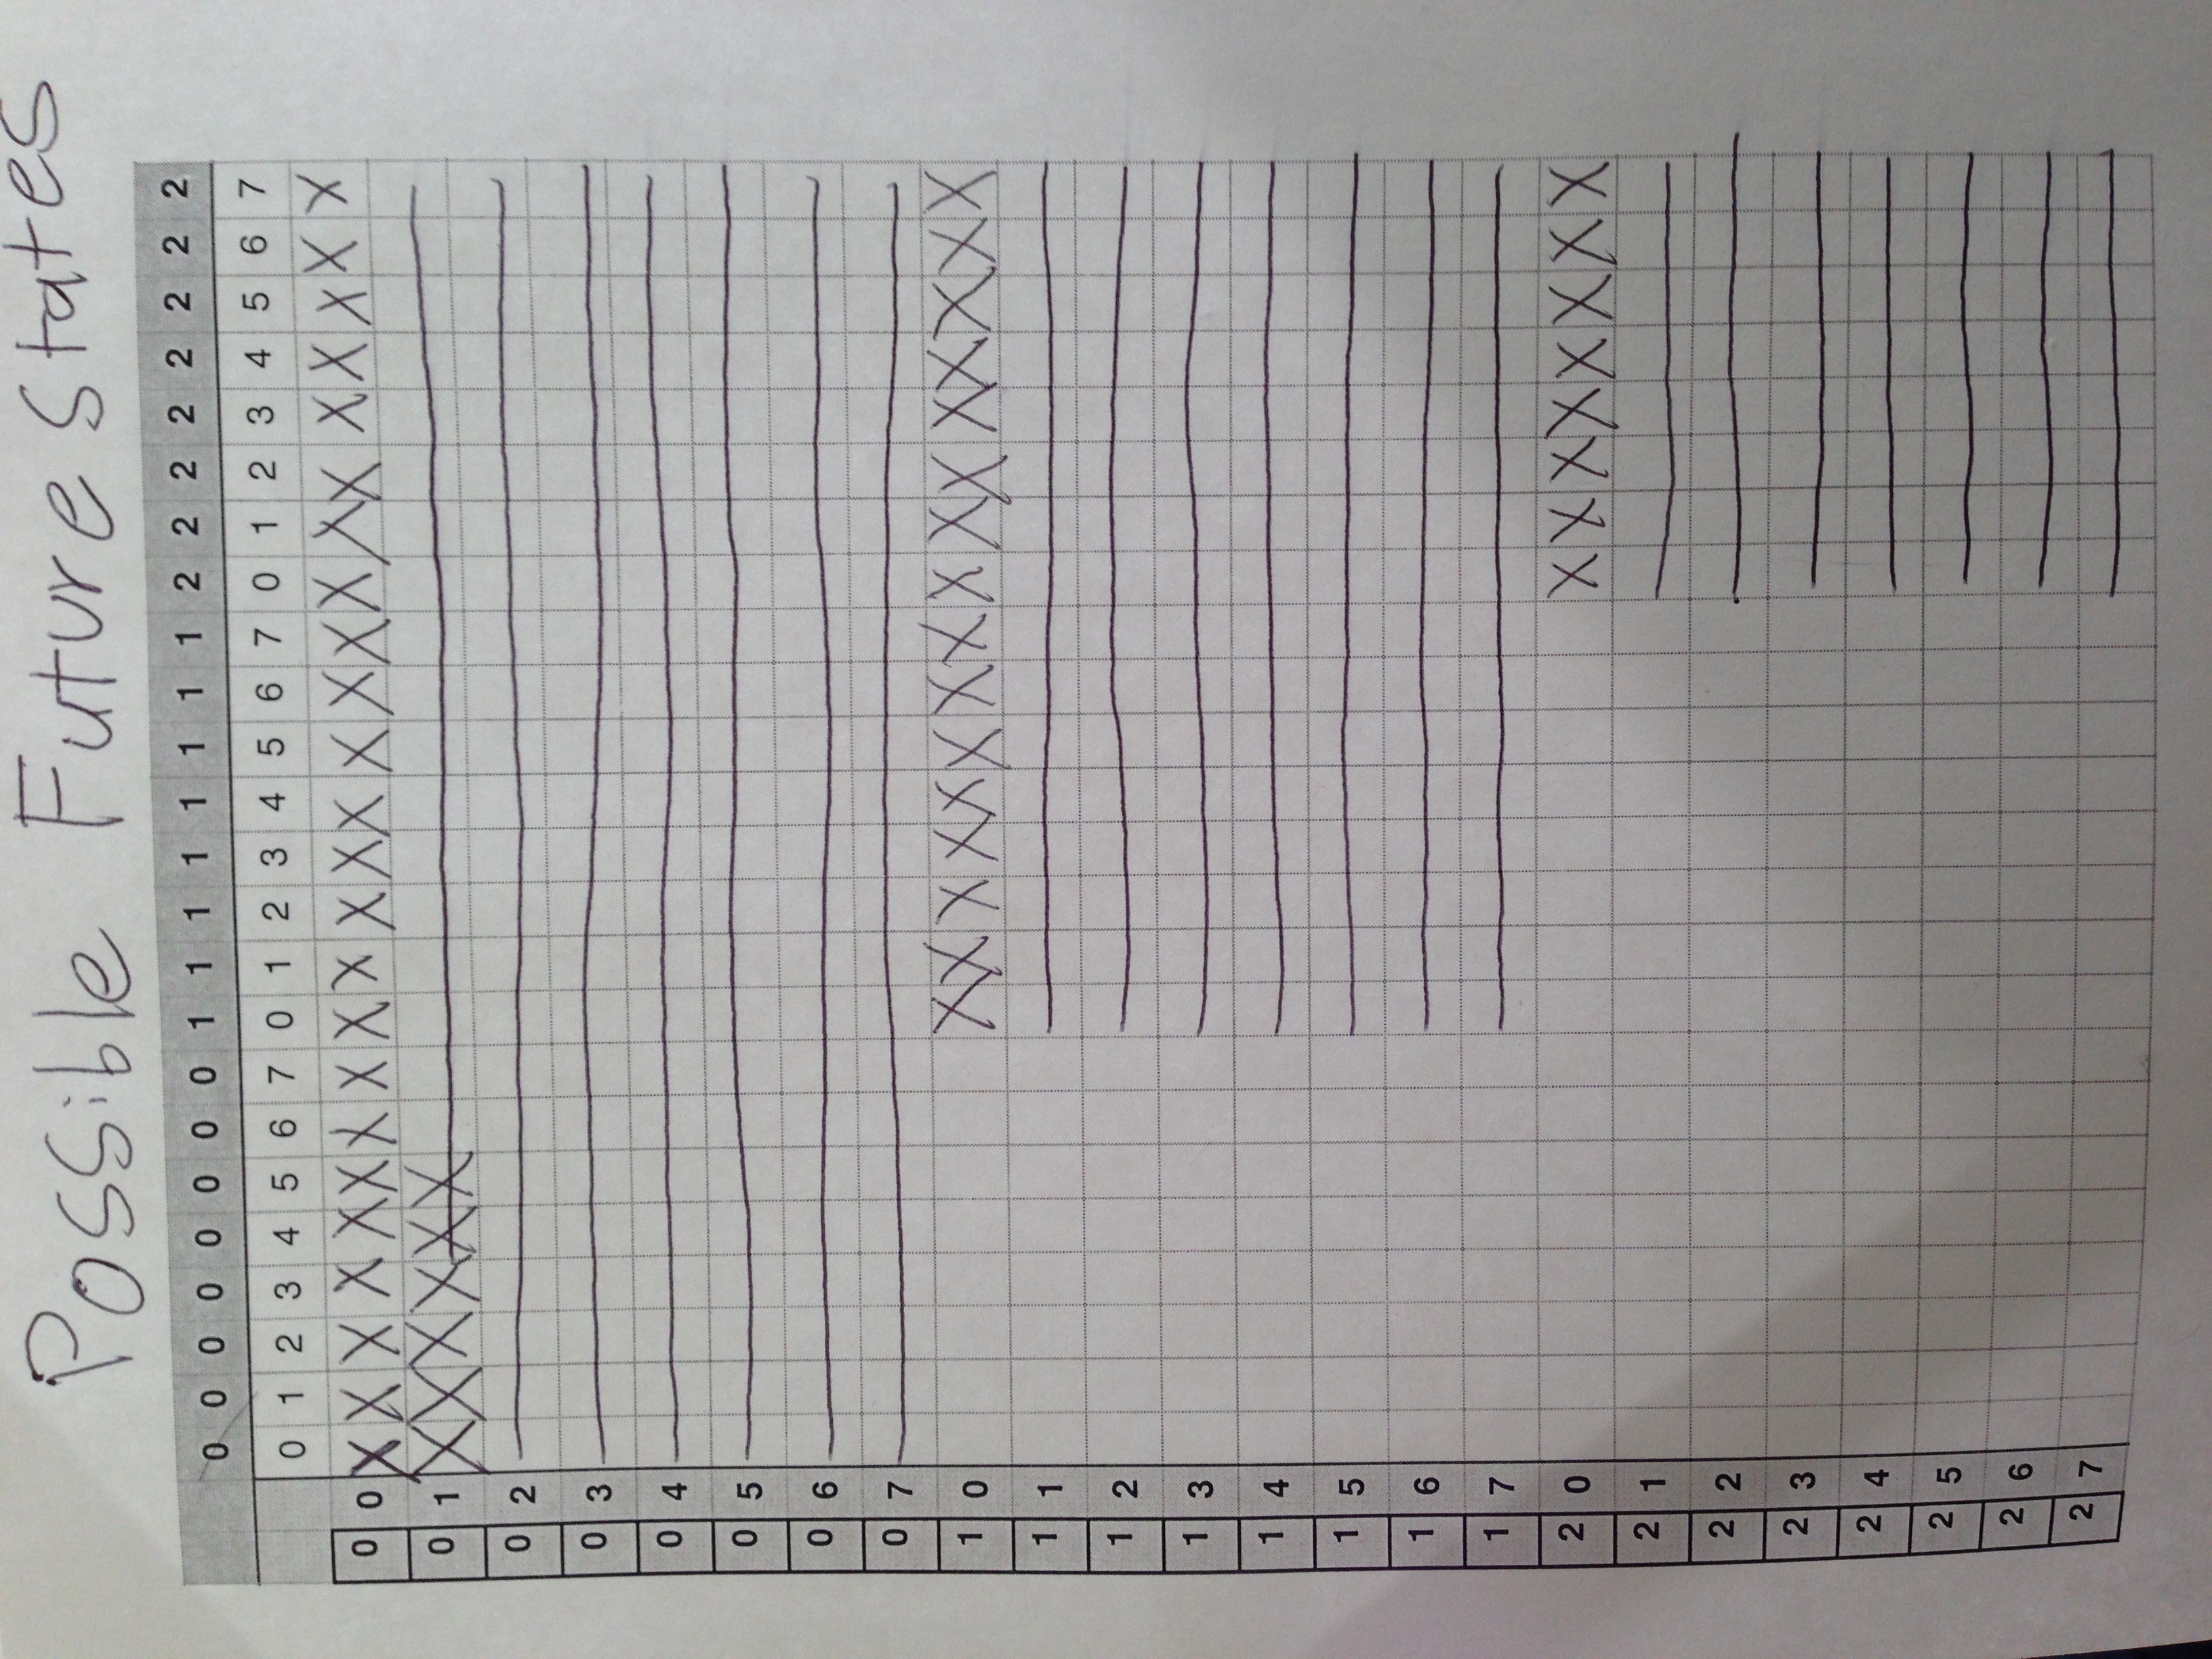 Possible Future states
0 0 0 0 0 0 0 0 1 1 1 1 1 1 1 1 2 2 2 2 2 2 2 2
0 1 2 3 4 5 6 7 0 1 2 3 4 5 6 7 0 1 2 3 4 5 6 7
0 0 X X X X X X X X X X X X X X X X X X X X X X X X
0 1 X X X X X X
0 2
0 3
0 4
0 5
0 6
0 7
1 0 X X X X X X X X X X X X X X X X
1 1
1 2
1 3
1 4
1 5
1 6
1 7
2 0 X X X X X X X X
2 1
2 2
2 3
2 4
2 5
2 6
2 7